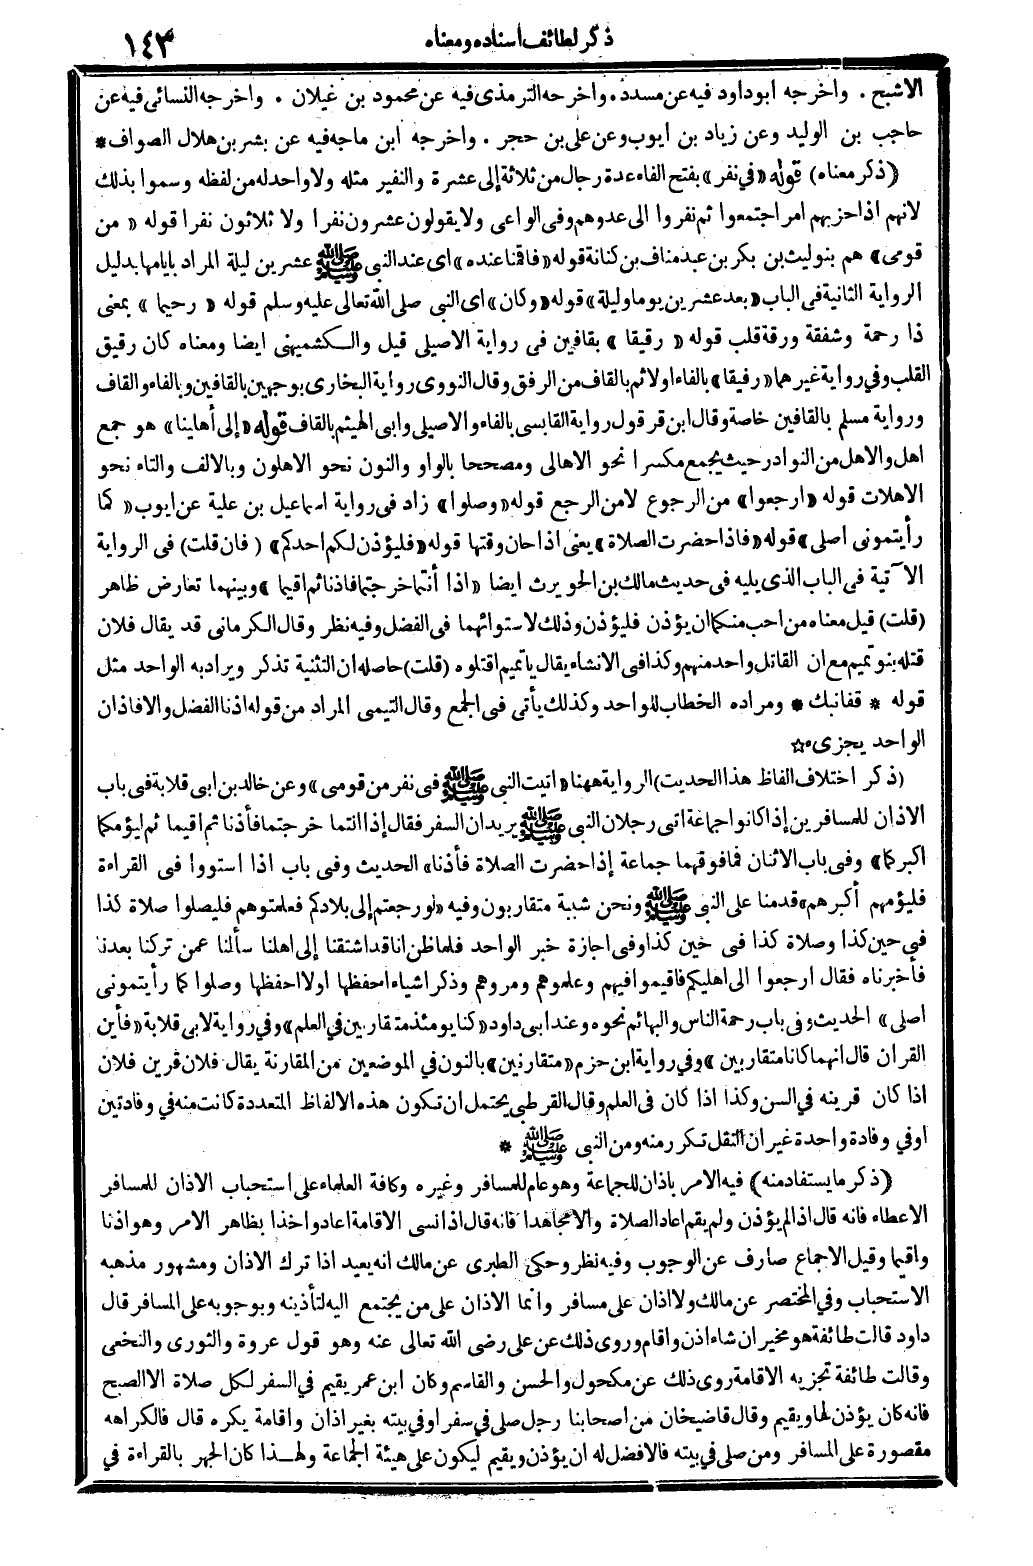 ذكر لطائف اسناده ومعناه ١٤٣
الاشج . واخرجه ابو داود فيه عن مسدد . واخرجه الترمذى فيه عن محمود بن غيلان . واخرجه النسائى فيه عن
حاجب بن الوليد وعن زياد بن ايوب وعن على بن حجر . واخرجه ابن ماجه فيه عن بشر بن هلال الصواف *
(ذكر معناه) قوله «فى نفر» بفتح الفاء عدة رجال من ثلاثة إلى عشرة والنفير مثله ولا واحد له من لفظه وسموا بذلك
لانهم اذا حزبهم امر اجتمعوا ثم نفروا الى عدوهم وفى الواعى ولا يقولون عشرون نفرا ولا ثلاثون نفرا قوله « من
قومى » هم بنو ليث بن بكر بن عبد مناف بن كنانة قوله «فاقمنا عنده» اى عند النبى ﷺ عشرين ليلة المراد بايامها بدليل
الرواية الثانية فى الباب «بعد عشرين يوما وليلة» قوله «وكان» اى النبى صلى الله تعالى عليه وسلم قوله « رحيما » بمعنى
ذا رحمة وشفقة ورقة قلب قوله « رقيقا » بقافين فى رواية الاصيلى قيل والكشميهنى ايضا ومعناه كان رقيق
القلب وفي رواية غيرهما «رفيقا» بالفاء اولا ثم بالقاف من الرفق وقال النووى رواية البخارى بوجهين بالقافين وبالفاء والقاف
ورواية مسلم بالقافين خاصة وقال ابن قرقول رواية القابسى بالفاء والاصيلى وابى الهيثم بالقاف قوله «إلى أهلينا» هو جمع
اهل والاهل من النوادر حيث يجمع مكسرا نحو الاهالى ومصححا بالواو والنون نحو الاهلون وبالالف والتاء نحو
الاهلات قوله « ارجعوا » من الرجوع لا من الرجع قوله «وصلوا» زاد فى رواية اسماعيل بن علية عن ايوب « كما
رأيتمونى اصلى» قوله «فاذا حضرت الصلاة» يعنى اذا حان وقتها قوله «فليؤذن لكم احدكم» ( فان قلت) فى الرواية
الآتية فى الباب الذى يليه فى حديث مالك بن الحويرث ايضا «اذا أنتما خرجتما فاذنا ثم اقيما » وبينهما تعارض ظاهر
(قلت) قيل معناه من احب منكما ان يؤذن فليؤذن وذلك لاستوائهما فى الفضل وفيه نظر وقال الكرمانى قد يقال فلان
قتله بنو تميم مع ان القاتل واحد منهم وكذا فى الانشاء يقال يا تميم اقتلوه (قلت) حاصله ان التثنية تذكر ويراد به الواحد مثل
قوله * قفا نبك * ومراده الخطاب للواحد وكذلك يأتى فى الجمع وقال التيمى المراد من قوله اذنا الفضل والا فاذان
الواحد يجزىء☆
(ذكر اختلاف الفاظ هذا الحديث) الرواية ههنا «اتيت النبى ﷺ فى نفر من قومى» وعن خالد بن ابى قلابة فى باب
الاذان للمسافرين إذا كانوا جماعة اتى رجلان النبى ﷺ يريدان السفر فقال إذا انتما خرجتما فأذنا ثم اقيما ثم ليؤمكما
اكبركما» وفى باب الاثنان فما فوقهما جماعة إذا حضرت الصلاة فأذنا» الحديث وفى باب اذا استووا فى القراءة
فليؤمهم أكبرهم» قدمنا على النبى ﷺ ونحن شببة متقاربون وفيه «لو رجعتم إلى بلادكم فعلمتوهم فليصلوا صلاة كذا
فى حين كذا وصلاة كذا فى حين كذا وفى اجازة خبر الواحد فلما ظن انا قد اشتقنا إلى اهلنا سألنا عمن تركنا بعدنا
فأخبرناه فقال ارجعوا الى اهليكم فاقيموا فيهم وعلموهم ومروهم وذكر اشياء احفظها اولا احفظها وصلوا كما رأيتمونى
اصلى» الحديث وفى باب رحمة الناس والبهائم نحوه وعند ابى داود «كنا يومئذ متقاربين في العلم» وفي رواية لابى قلابة «فأين
القرآن قال انهما كانا متقاربين » وفي رواية ابن حزم «متقارنين» بالنون في الموضعين من المقارنة يقال فلان قرين فلان
اذا كان قرينه في السن وكذا اذا كان فى العلم وقال القرطبى يحتمل ان تكون هذه الالفاظ المتعددة كانت منه في وفادتين
اوفي وفادة واحدة غير ان النقل تكرر منه ومن النبى ﷺ *
(ذكر ما يستفاد منه) فيه الامر باذان للجماعة وهو عام للمسافر وغيره وكافة العلماء على استحباب الاذان للمسافر
الا عطاء فانه قال اذا لم يؤذن ولم يقم اعاد الصلاة والا مجاهدا فانه قال اذا نسى الاقامة اعاد واخذا بظاهر الامر وهو اذنا
واقيما وقيل الاجماع صارف عن الوجوب وفيه نظر وحكى الطبرى عن مالك انه يعيد اذا ترك الاذان ومشهور مذهبه
الاستحباب وفي المختصر عن مالك ولا اذان على مسافر وانما الاذان على من يجتمع اليه لتأذينه وبوجوبه على المسافر قال
داود قالت طائفة هو مخير ان شاء اذن واقام وروى ذلك عن على رضى الله تعالى عنه وهو قول عروة والثورى والنخعى
وقالت طائفة تجزيه الاقامة روى ذلك عن مكحول والحسن والقاسم وكان ابن عمر يقيم في السفر لكل صلاة الا الصبح
فانه كان يؤذن لها ويقيم وقال قاضيخان من اصحابنا رجل صلى في سفر او في بيته بغير اذان واقامة يكره قال فالكراهه
مقصورة على المسافر ومن صلى في بيته فالافضل له ان يؤذن ويقيم ليكون على هيئة الجماعة ولهذا كان الجهر بالقراءة في